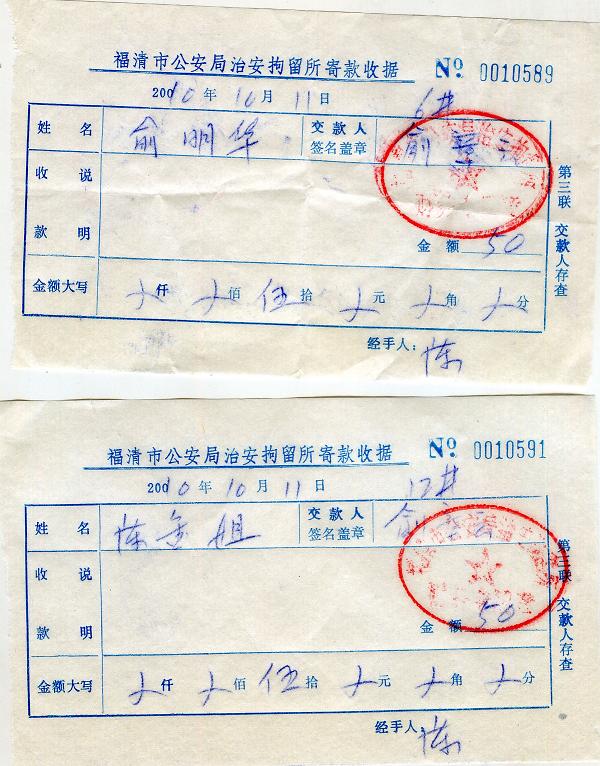 福清市公安局治安拘留所寄款收据 № 0010589
2010年10月11日 6#
姓名 俞明华 交款人签名盖章 俞
收款说明
金额 50
金额大写 仟 佰 伍拾 元 角 分
经手人: 陈
第三联 交款人存查
福清市公安局治安拘留所寄款收据 № 0010591
2010年10月11日 12#
姓名 陈金姐 交款人签名盖章 俞
收款说明
金额 50
金额大写 仟 佰 伍拾 元 角 分
经手人: 陈
第三联 交款人存查